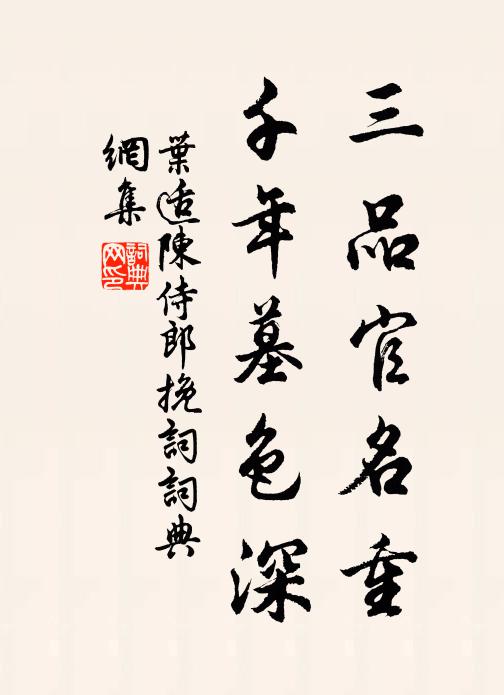 三品官名重
千年墓色深
葉适陳侍郎挽詞詞典
網集
詞典
网印